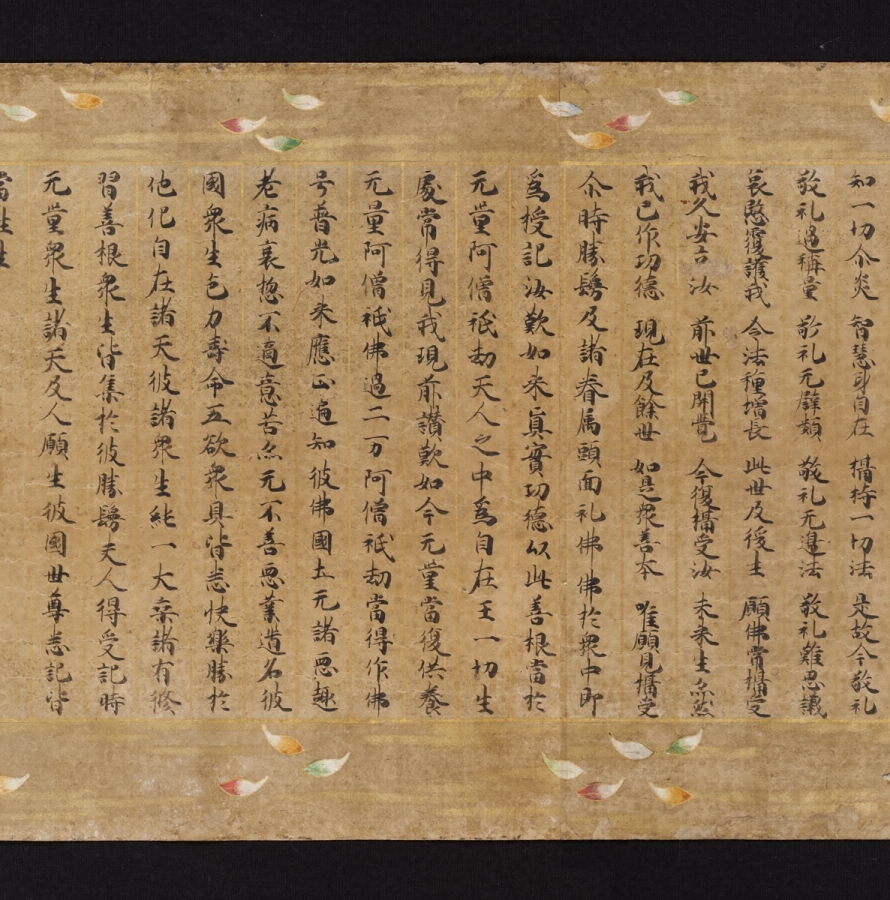 知一切尒炎 智慧身自在 攝持一切法 是故今敬礼
敬礼過稱量 敬礼无譬類 敬礼无邊法 敬礼難思議
哀愍覆護我 令法種增長 此世及後生 願佛常攝受
我久安立汝 前世已開覺 今復攝受汝 未来生亦然
我已作功德 現在及餘世 如是衆善本 唯願見攝受
尒時勝鬘及諸眷属頭面礼佛佛於衆中即
為授記汝歎如来真實功德以此善根當於
无量阿僧祇劫天人之中為自在王一切生
處常得見我現前讃歎如今无量當復供養
无量阿僧祇佛過二万阿僧祇劫當得作佛
号普光如来應正遍知彼佛國土无諸惡趣
老病衰惱不適意苦亦无不善惡業道名彼
國衆生色力壽命五欲衆具皆悉快樂勝於
他化自在諸天彼諸衆生純一大乘諸有修
習善根衆生皆集於彼勝鬘夫人得受記時
无量衆生諸天及人願生彼國世尊悉記皆
當往生